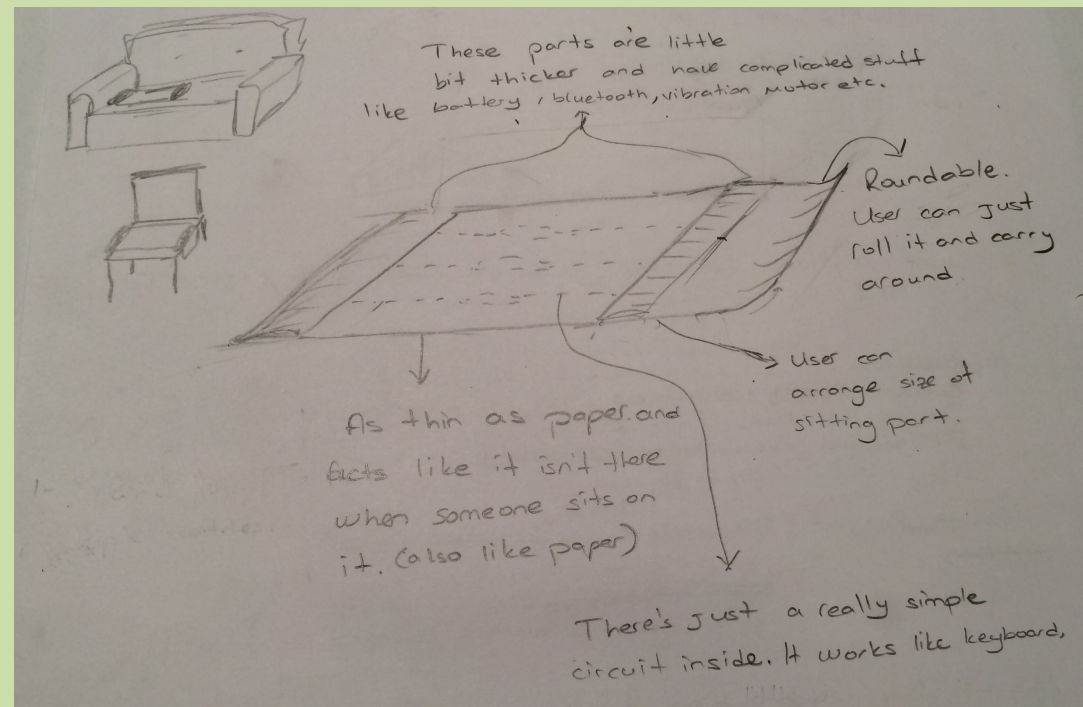 These parts are little
bit thicker and have complicated stuff
like battery, bluetooth, vibration motor etc.
Roundable.
User can just
roll it and carry
around.
User can
arrange size of
sitting part.
As thin as paper and
acts like it isn't there
when someone sits on
it. (also like paper)
There's just a really simple
circuit inside. It works like keyboard,